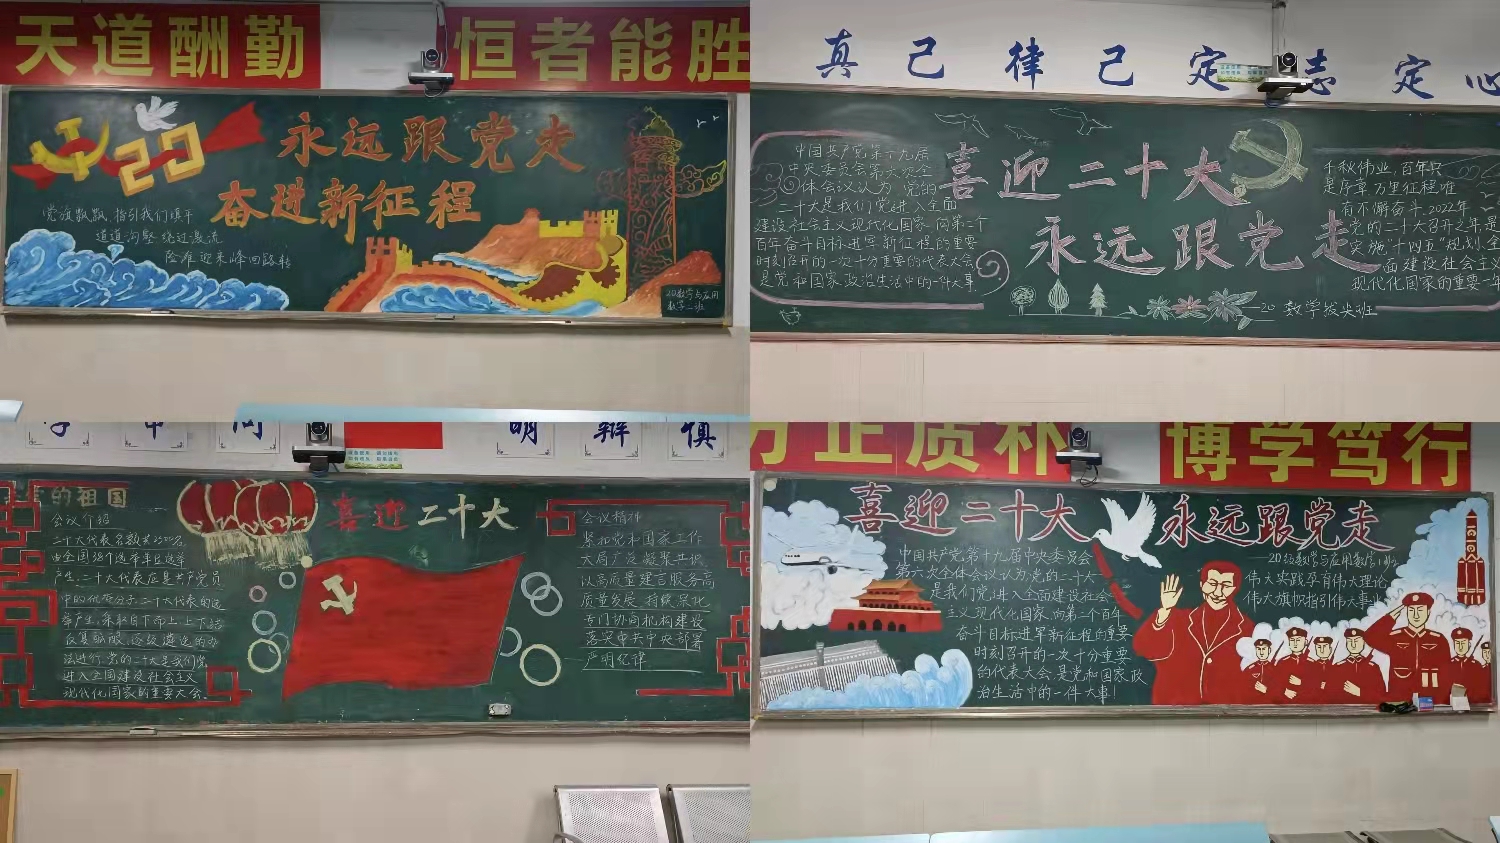 天道酬勤
恒者能胜
20
永远跟党走
奋进新征程
党旗飘飘,指引我们填平
道道沟壑 绕过激流
险难迎来峰回路转
20数学与应用
数学二班
真己律己定志定心
中国共产党第十九届
中央委员会第六次全
体会议认为 党的
二十大是我们党进入全面
建设社会主义现代化国家,向第二个
百年奋斗目标进军新征程的重要
时刻召开的一次十分重要的代表大会
是党和国家政治生活中的一件大事.
喜迎二十大
永远跟党走
千秋伟业,百年只
是序章.万里征程唯
有不懈奋斗.2022年
党的二十大召开之年是
实施"十四五"规划、全
面建设社会主义
现代化国家的重要一年
20 数学拔尖班
问
明
辩
慎
的祖国
会议介绍
二十大代表名数共2300名
由全国38个选举单位选举
产生,二十大代表应是共产党员
中的优质分子.二十大代表的选
举产生,采取自下而上、上下结
反复酝酿、逐级遴选的办
法进行.党的二十大是我们党
进入全面建设社会主义
现代化国家的重要大会.
喜迎二十大
会议精神
紧扣党和国家工作
大局广泛凝聚共识
以高质量建言服务高
质量发展 持续深化
专门协商机构建设
落实中共中央部署
严明纪律
方正质朴
博学笃行
喜迎二十大 永远跟党走
20级数学与应用数学1班
中国共产党第十九届中央委员会
第六次全体会议认为,党的二十大
是我们党进入全面建设社会
主义现代化国家、向第二个百年
奋斗目标进军新征程的重要
时刻召开的一次十分重要
的代表大会,是党和国家政
治生活中的一件大事!
伟大实践孕育伟大理论
伟大旗帜指引伟大事业